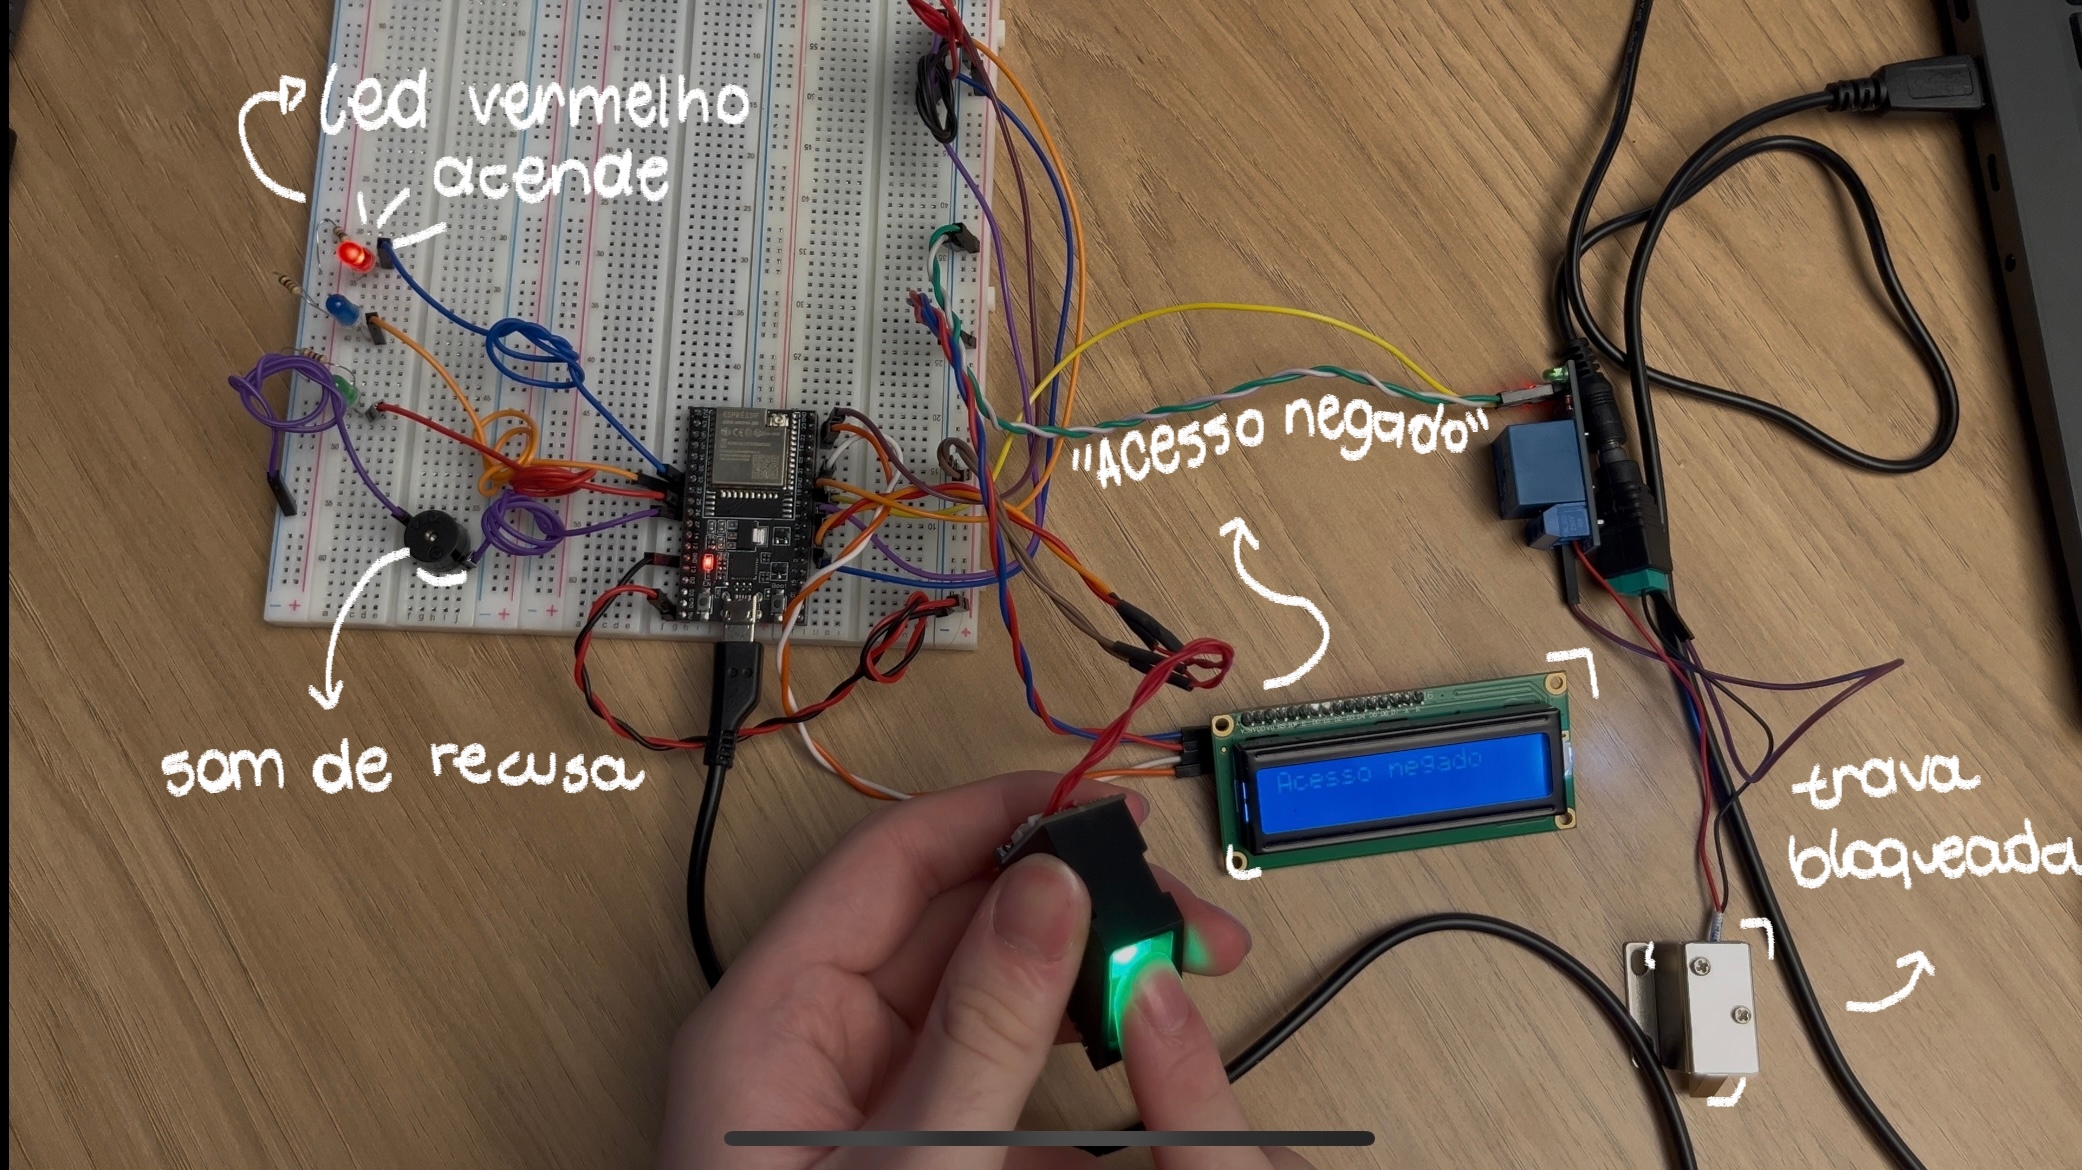 led vermelho
acende
"Acesso negado"
som de recusa
Acesso negado
trava
bloqueada
ESPRESSIF